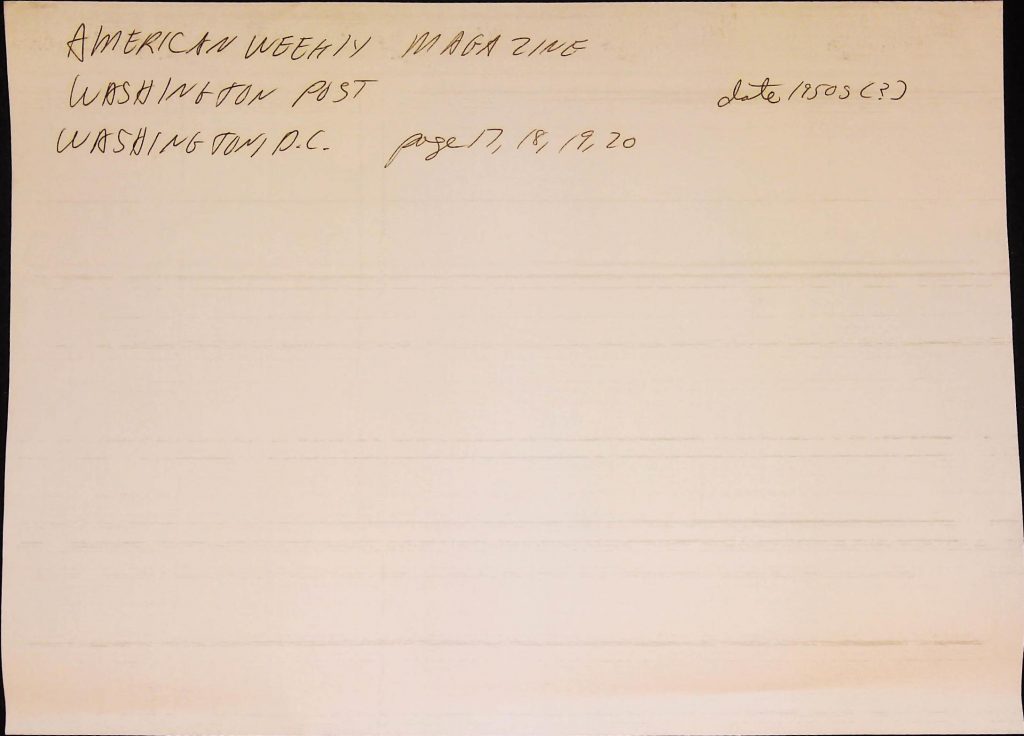 AMERICAN WEEKLY MAGAZINE
WASHINGTON POST date 1950s (?)
WASHINGTON, D.C. page 17, 18, 19, 20